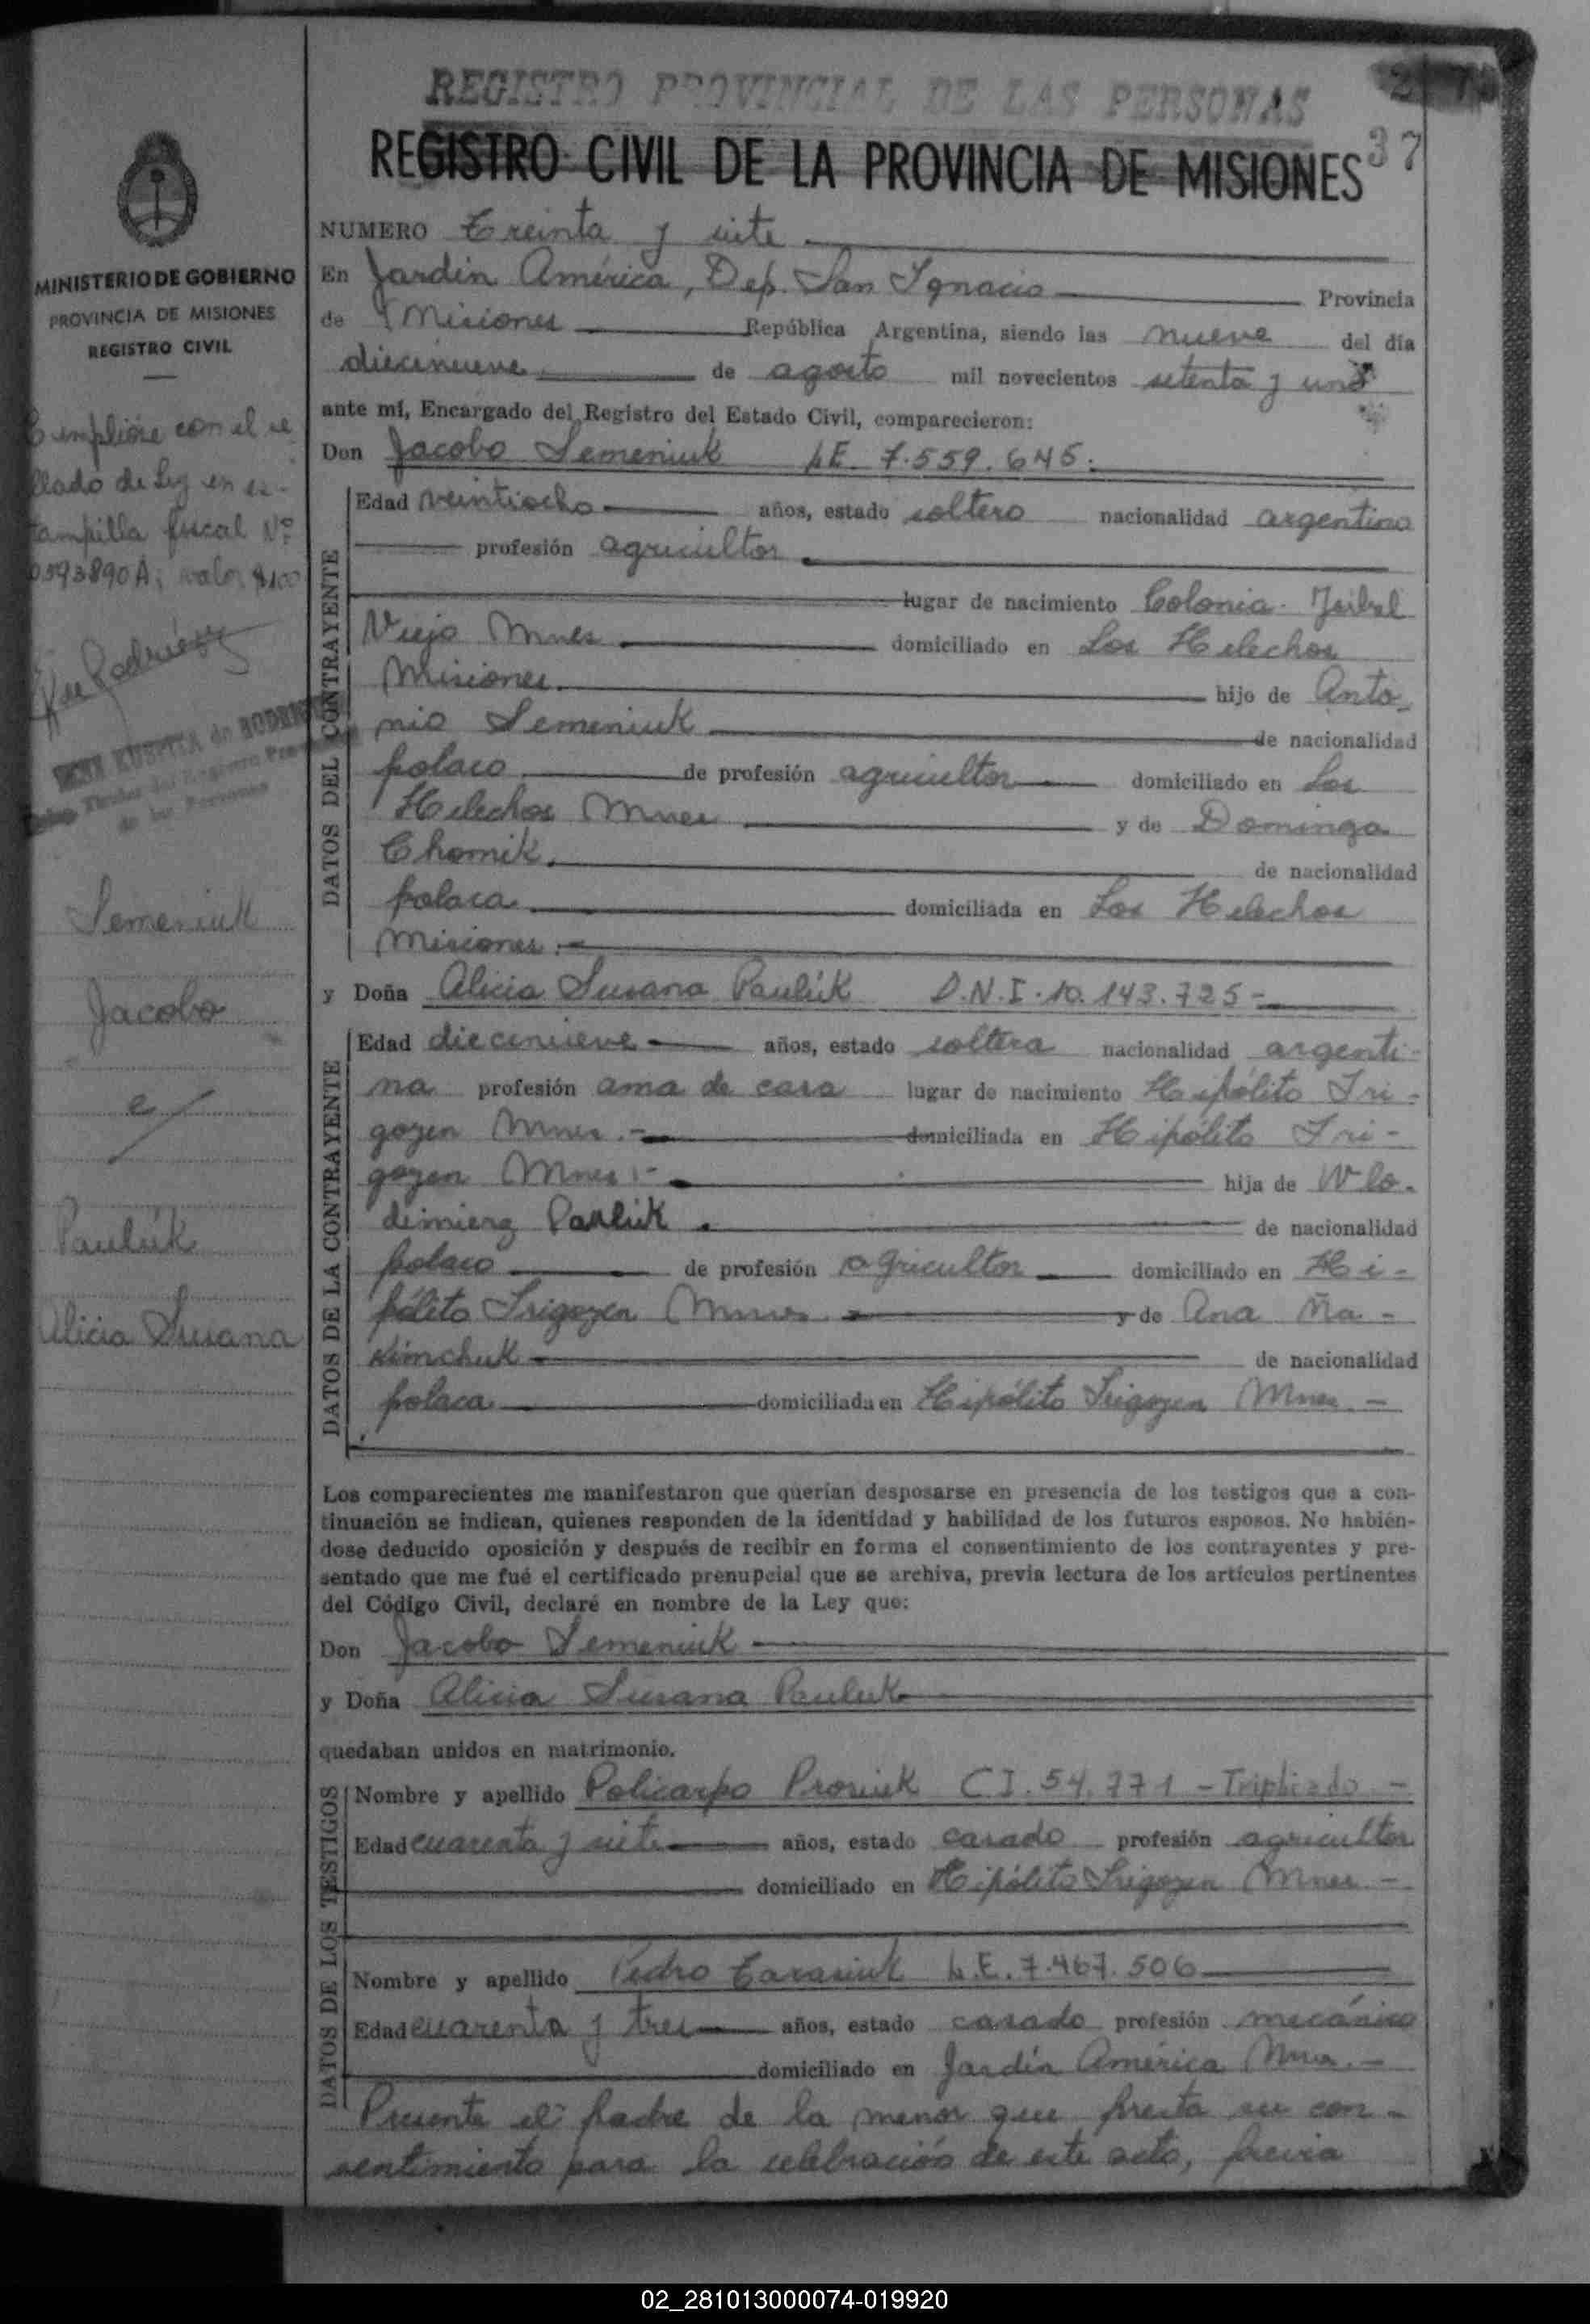 REGISTRO PROVINCIAL DE LAS PERSONAS
REGISTRO CIVIL DE LA PROVINCIA DE MISIONES 37
MINISTERIO DE GOBIERNO
PROVINCIA DE MISIONES
REGISTRO CIVIL
Cumplióse con el se
llado de Ley en es-
tampilla fiscal Nº
0593890A; valor $100
Semeniuk
Jacobo
c/
Paulúk
Alicia Susana
NUMERO Treinta y siete
En Jardín América, Dep. San Ignacio Provincia
de Misiones República Argentina, siendo las nueve del día
diecinueve de agosto mil novecientos setenta y uno
ante mí, Encargado del Registro del Estado Civil, comparecieron:
Don Jacobo Semeniuk LE. 7.559.645.
DATOS DEL CONTRAYENTE
Edad veintiocho años, estado soltero nacionalidad argentino
profesión agricultor
lugar de nacimiento Colonia
Viejo Mnes domiciliado en Los Helechos
Misiones. hijo de Anto-
nio Semeniuk de nacionalidad
polaco de profesión agricultor domiciliado en Los
Helechos Mnes y de Dominga
Chomik. de nacionalidad
polaca domiciliada en Los Helechos
Misiones.-
y Doña Alicia Susana Paulúk D.N.I. 10.143.725-
DATOS DE LA CONTRAYENTE
Edad diecinueve años, estado soltera nacionalidad argenti-
na profesión ama de casa lugar de nacimiento Hipólito Iri-
goyen Mnes.- domiciliada en Hipólito Iri-
goyen Mnes.- hija de Wlo-
dimierz Paulúk. de nacionalidad
polaco de profesión agricultor domiciliado en Hi-
pólito Irigoyen Mnes y de Ana Ña-
kimchuk de nacionalidad
polaca domiciliada en Hipólito Irigoyen Mnes.-
Los comparecientes me manifestaron que querían desposarse en presencia de los testigos que a con-
tinuación se indican, quienes responden de la identidad y habilidad de los futuros esposos. No habién-
dose deducido oposición y después de recibir en forma el consentimiento de los contrayentes y pre-
sentado que me fué el certificado prenupcial que se archiva, previa lectura de los artículos pertinentes
del Código Civil, declaré en nombre de la Ley que:
Don Jacobo Semeniuk
y Doña Alicia Susana Pauluk
quedaban unidos en matrimonio.
DATOS DE LOS TESTIGOS
Nombre y apellido Policarpo Prosiuk CI. 54.771 - Triplicado -
Edad cuarenta y siete años, estado casado profesión agricultor
domiciliado en Hipólito Irigoyen Mnes -
Nombre y apellido Pedro Tarasiuk L.E. 7.467.506
Edad cuarenta y tres años, estado casado profesión mecánico
domiciliado en Jardín América Mnes.-
Presente el padre de la menor que presta su con-
sentimiento para la celebración de este acto, previa
02_281013000074-019920